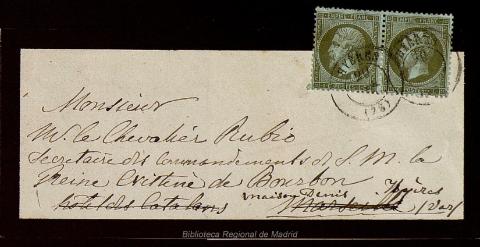 EMPIRE FRANC EMPIRE FRANC
HYERES
(78)
Monsieur
M. le Chevalier Rubio
Secretaire des Commandements de S. M. la
Reine Cristine de Bourbon Hyères
maison Denis
hotel des Catalans Marseille (Var)
Biblioteca Regional de Madrid